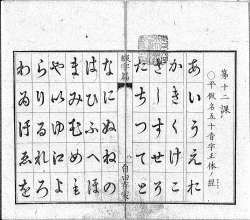 第十二課
○平假名五十音字正体ノ
あいうえお
かきくけこ
さしすせそ
たちつてと
なにぬねの
はひふへほ
まみむめも
やいゆえよ
らりるれろ
わゐうゑを